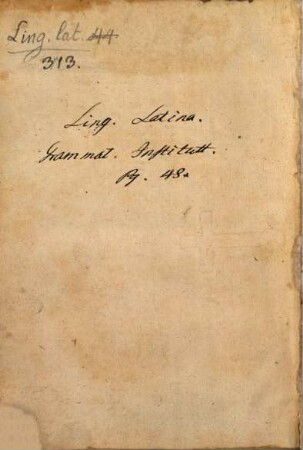 Ling. lat. 44
313.
Ling. Latina.
Grammat. Institutt.
48a